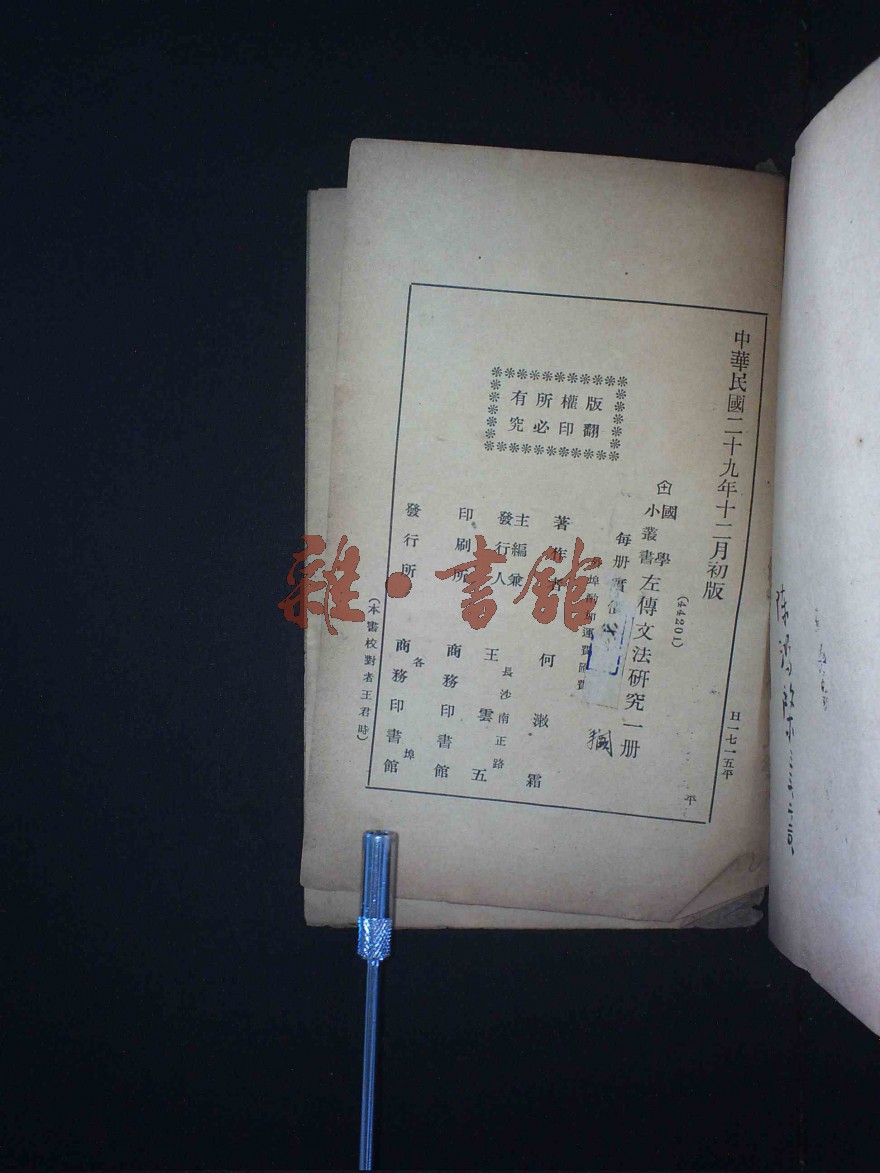 中華民國二十九年十二月初版
日一七一五平
(44201)
國學
小叢書
左傳文法研究一册
每册實價
外埠酌加運費匯費
著作者 何漱霜
主編兼
發行人 王雲五
長沙南正路
印刷所 商務印書館
發行所 商務印書館
各埠
(本書校對者王君時)
版權所有
翻印必究
平
雜·書館